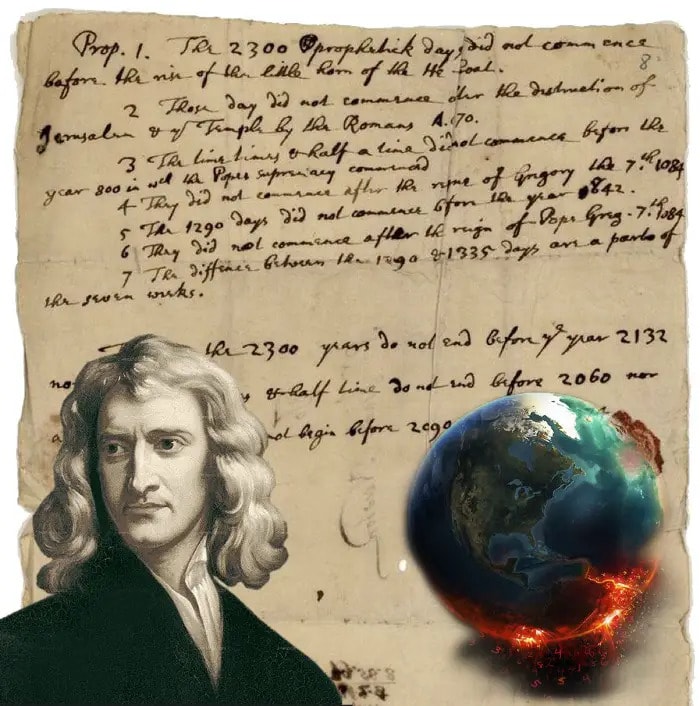 Prop. 1. The 2300 prophetick days did not commence
before the rise of the little horn of the He Goat.
8
2 Those day did not commence after the destruction of
Jerusalem & ye Temple by the Romans A. 70.
3 The time times & half a time did not commence before the
year 800 in wch the Popes supremacy commenced
4 They did not commence after the reigne of Gregory the 7th. 1084
5 The 1290 days did not commence before the year 842.
6 They did not commence after the reign of Pope Greg. 7th. 1084
7 The diffence between the 1290 & 1335 days are a parts of
the seven weeks.
the 2300 years do not end before ye year 2132
no
& half time do not end before 2060 nor
a
begin before 2090